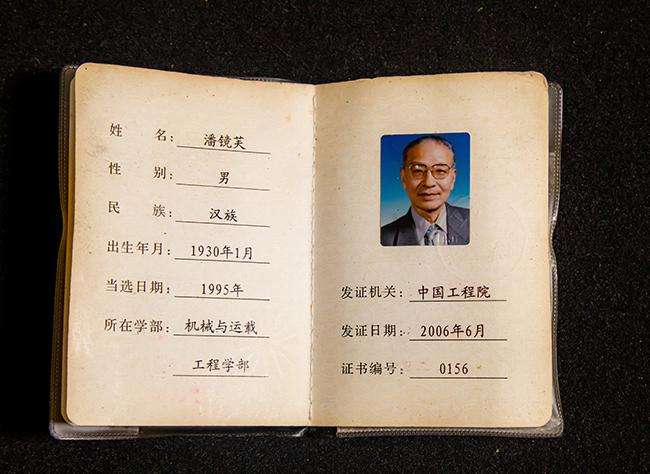 姓 名: 潘镜芙
性 别: 男
民 族: 汉族
出生年月: 1930年1月
当选日期: 1995年
所在学部: 机械与运载
工程学部
发证机关: 中国工程院
发证日期: 2006年6月
证书编号: 0156